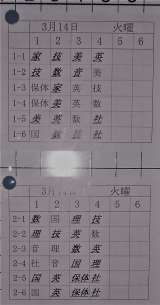 3月14日 火曜
1 2 3 4 5 6
1-1 家 技 美 英
1-2 技 数 音 美
1-3 保体 家 英 技
1-4 保体 美 英 数
1-5 美 英 数 社
1-6 国 数 社
3月14日 火曜
1 2 3 4 5 6
2-1 数 国 理 技
2-2 理 技 英 数
2-3 音 理 数 英
2-4 社 音 国 理
2-5 国 英 保体 社
2-6 国 英 保体 社